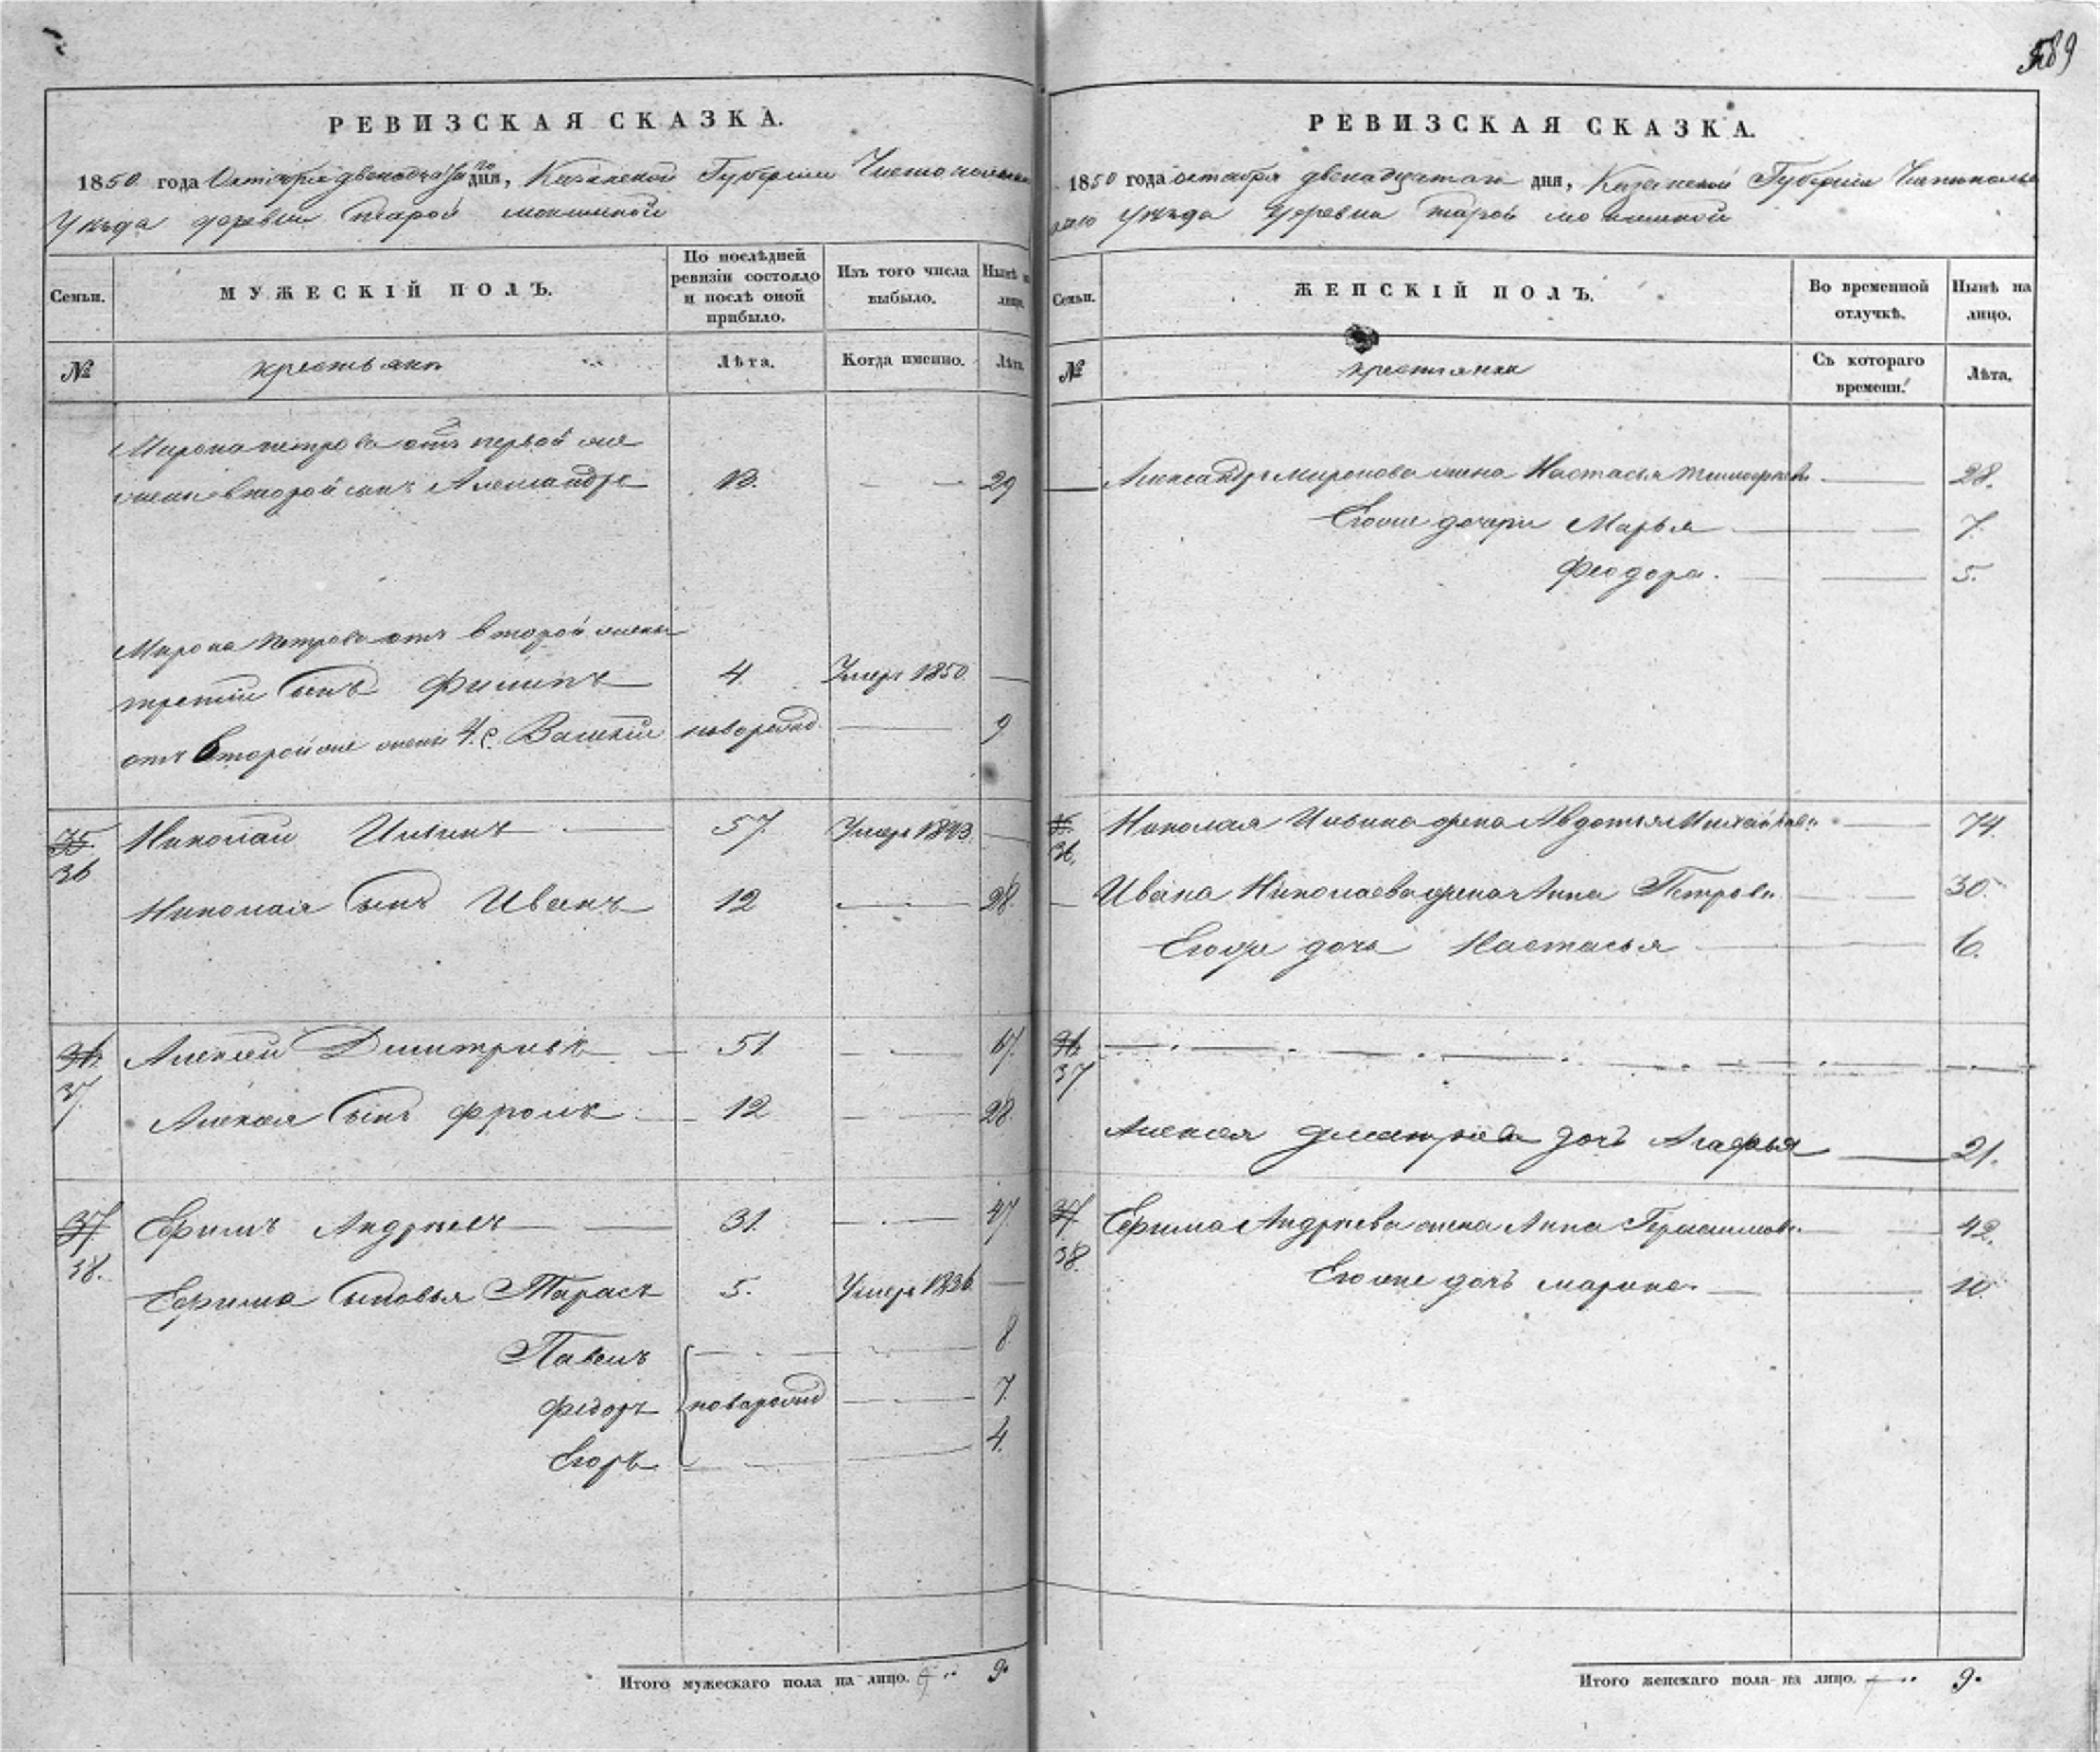 589
РЕВИЗСКАЯ СКАЗКА.
1850 года Октября двенадцатаго дня, Казанской Губерніи Чистопольскаго
Уѣзда деревни Старой мокшиной
Семьи.
МУЖЕСКІЙ ПОЛЪ.
По послѣдней
ревизіи состояло
и послѣ оной
прибыло.
Изъ того числа
выбыло.
Нынѣ на
лицо.
№
крестьяне
Лѣта.
Когда именно.
Лѣта.
Мирона петрова отъ первой же
жены второй сынъ Александръ 13. 29
Мирона петрова отъ второй жены
третій сынъ Филипъ 4. Умеръ 1850.
отъ второй же жены 4. с. Василій новорожд. 9
35. Николай Ильинъ 57. Умеръ 1843.
36
Николая сынъ Иванъ 12 28
36. Алексей Дмитриевъ 51. 67.
37.
Алексея сынъ Фролъ 12 28.
37. Ефимъ Андреевъ 31. 47.
38.
Ефима сыновья Тарасъ 5. Умеръ 1836.
Павелъ 8
Федоръ новорожд 7.
Егоръ 4.
Итого мужескаго пола на лицо. 9.
РЕВИЗСКАЯ СКАЗКА.
1850 года октября двенадцатаго дня, Казанской Губерніи Чистополь
скаго Уѣзда деревни старой мокшиной
Семьи.
ЖЕНСКІЙ ПОЛЪ.
Во временной
отлучкѣ.
Нынѣ на
лицо.
№
крестьянки
Съ котораго
времени.
Лѣта.
Александра Миронова жена Настасья 28.
Егоже дочери Марья 7.
Феодора. 5.
35. Николая Ильина жена Авдотья Михайлова 74.
36.
Ивана Николаева жена Анна Петрова 30.
Егоже дочь Настасья 6.
36.
37
Алексея дмитриева дочь Агафья 21.
37. Ефима Андреева жена Анна Герасимова 42.
38.
Егоже дочь марина. 10.
Итого женскаго пола на лицо. 9.